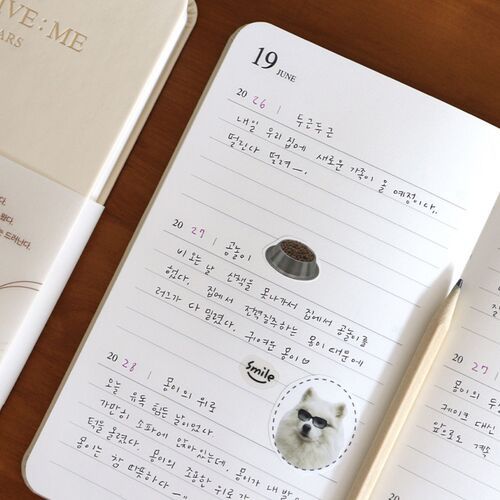 IVE : ME
ARS
다.
됩니다.
는 드러난다.
19 JUNE
20 26 | 두근두근
내일 우리집에 새로운 가족이 올 예정이다..
떨린다 떨려ㅡ,
20 27 | 공놀이
비 오는 날 산책을 못나가서 집에서 공놀이를
했다. 집에서 전력질주하는 몽이 때문에
러그가 다 밀렸다. 귀여운 몽이♡
smile
20 28 | 몽이의 위로
오늘 유독 힘든 날이었다.
가만히 소파에 앉아있는데, 몽이가 내 발
턱을 올렸다. 몽이의 조용한 위로가
몽이는 참 따뜻하다
20 27 |
몽이의 두
케이크 대신
앞으로도 객